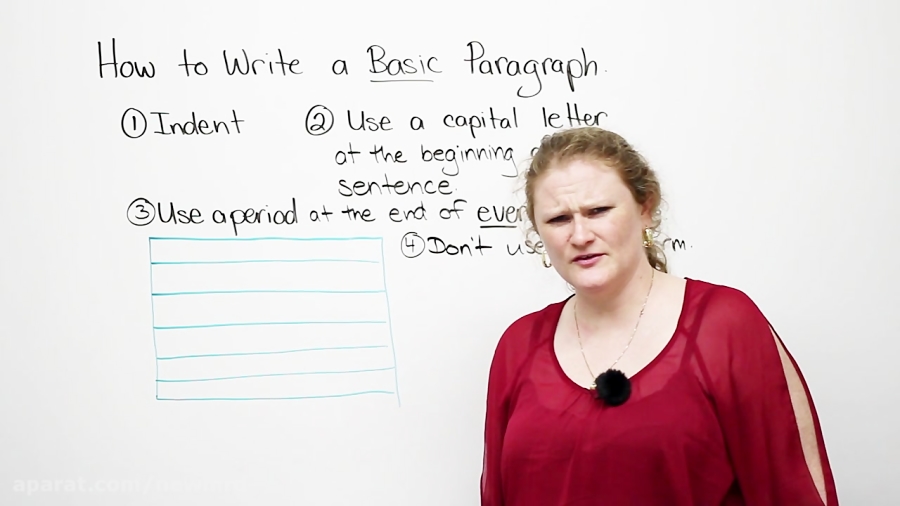 How to Write a Basic Paragraph.
① Indent
② Use a capital letter
at the beginning
sentence.
③ Use a period at the end of
④ Don't use
aparat.com/